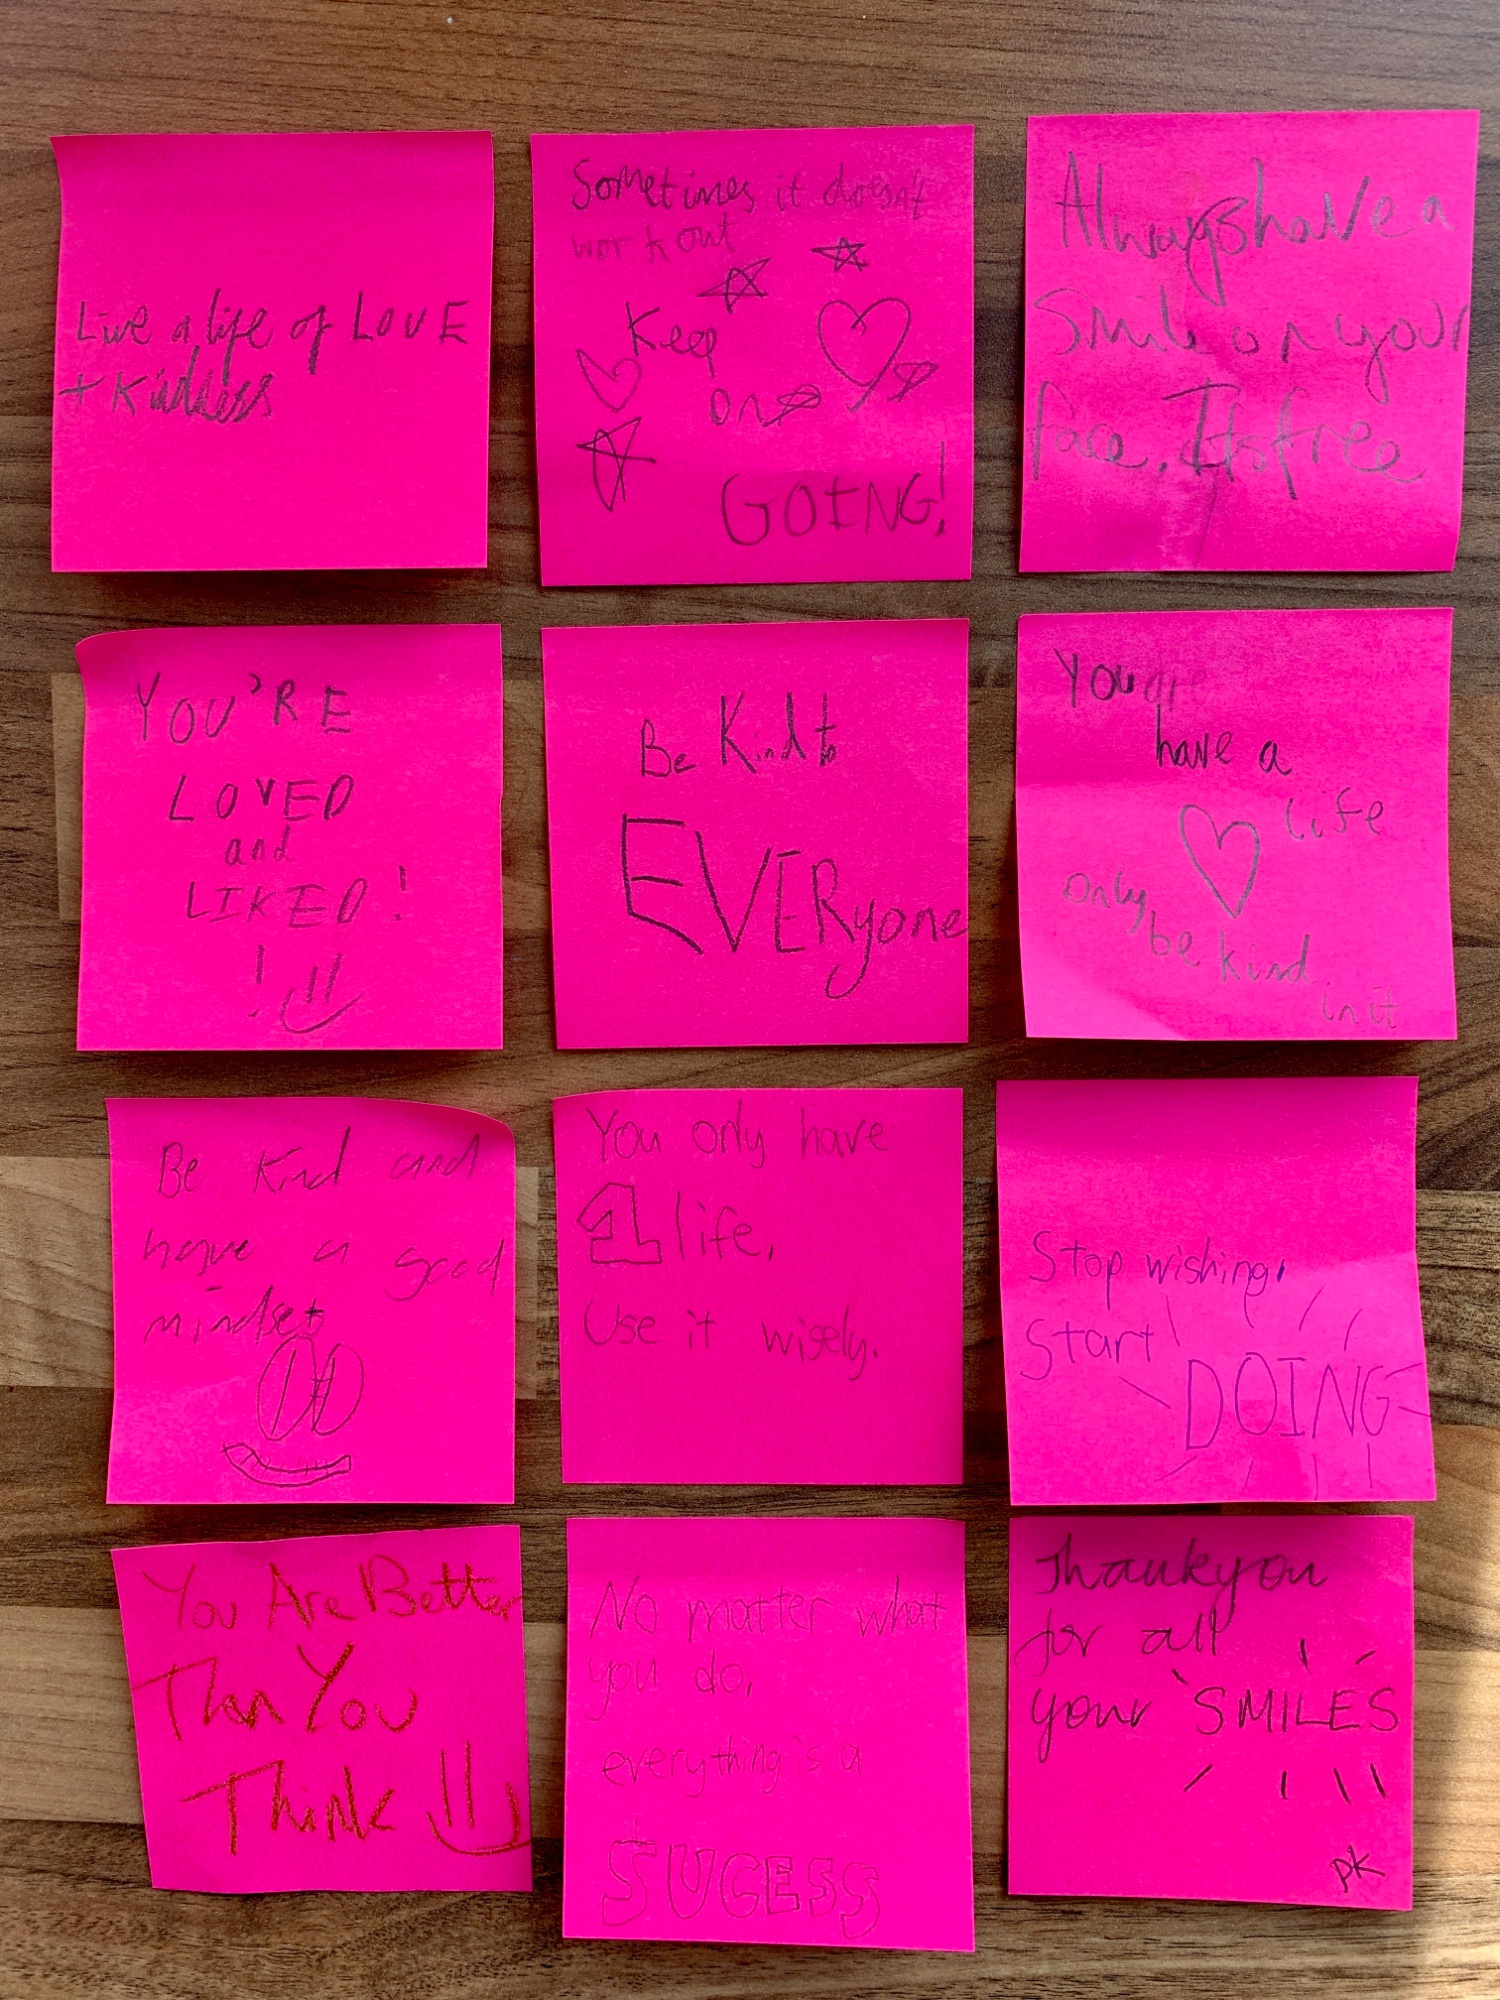 Live a life of LOVE
+ Kindness
Sometimes it doesn't
work out
Keep
on
GOING!
Always have a
Smile on your
face. Its free
YOU'RE
LOVED
and
LIKED!
!
Be Kind to
EVERyone
You are
have a
life
only
be kind
in it
Be Kind and
have a good
mindset
You only have
1 life,
Use it wisely.
Stop wishing,
Start
DOING
You Are Better
Than You
Think
No matter what
you do,
everything is a
SUCESS
Thankyou
for all
your SMILES
PK